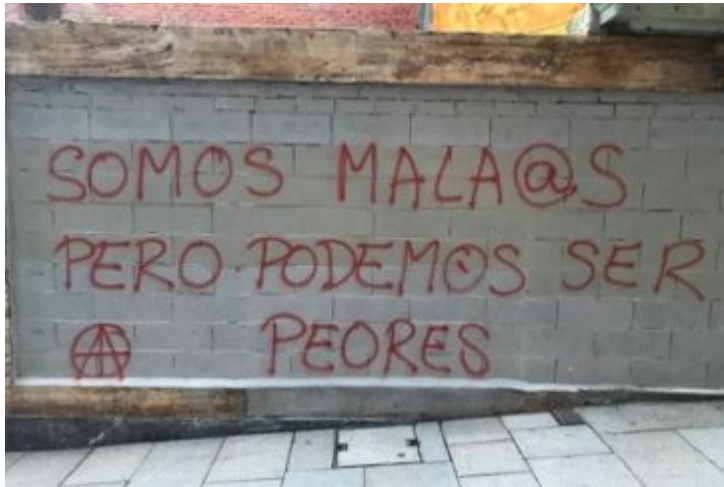 SOMOS MALA@S
PERO PODEMOS SER
Ⓐ PEORES